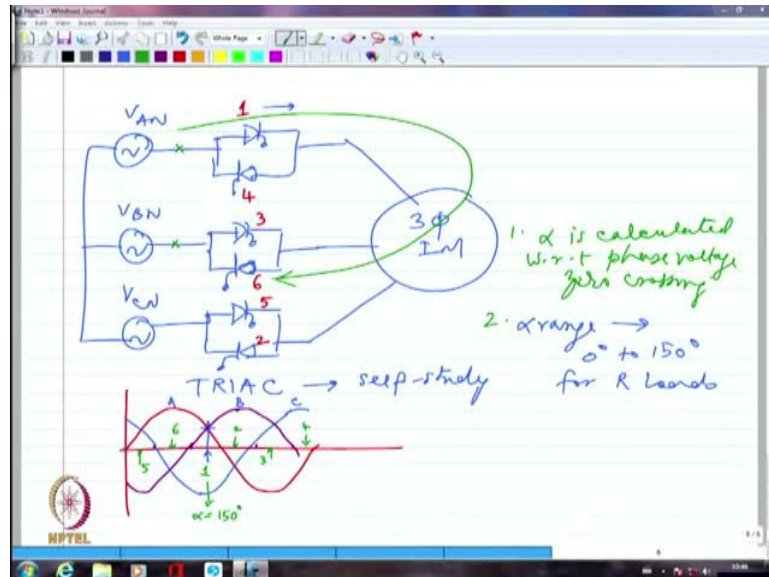 Note1 - Windows Journal
File Edit View Insert Actions Tools Help
Whole Page
V_AN
1 →
4
V_BN
3
6
V_CN
5
2
3ϕ
IM
1. α is calculated
w.r.t phase voltage
zero crossing
2. α range →
0° to 150°
for R Loads
TRIAC → self-study
A B C
6 2 4
5 1 3
α = 150°
NPTEL
6
6/6
10:46